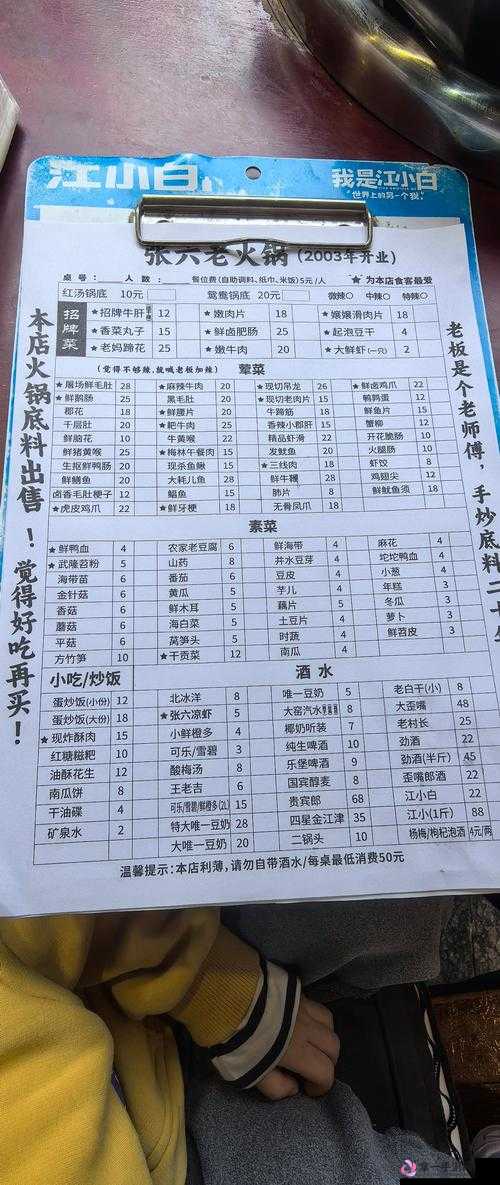 江小白
我是江小白
世界上的另一个我
张六老火锅(2003年开业)
桌号: 人数: 餐位费(自助调料、纸巾、米饭)5元/人 ★为本店食客最爱
红汤锅底 10元 鸳鸯锅底 20元 微辣○ 中辣○ 特辣○
招牌菜
★招牌牛肝 12 ★嫩肉片 18 ★嬢嬢滑肉片 18
★香菜丸子 15 ★鲜卤肥肠 25 ★起泡豆干 4
★老妈蹄花 25 ★嫩牛肉 20 ★大鲜虾(一只) 2
(觉得不够辣,就喊老板加辣) 荤菜
★屠场鲜毛肚 28 ★麻辣牛肉 20 ★现切吊龙 26 ★鲜卤鸡爪 22
★鲜鹅肠 25 黑毛肚 20 ★现切老肉片 15 鹌鹑蛋 12
郡花 18 ★鲜腰片 20 牛蹄筋 18 鲜鱼片 15
千层肚 20 ★耙牛肉 25 香辣小郡肝 15 蟹柳 12
鲜脑花 10 牛黄喉 22 精品虾滑 22 开花脆肠 10
鲜猪黄喉 25 ★梅林午餐肉 15 发鱿鱼 20 火腿肠 10
生抠鲜鸭肠 20 现杀鱼鳅 15 ★三线肉 18 虾饺 8
鲜鳝鱼 20 大耗儿鱼 28 鲜牛鞭 28 鸡翅尖 12
卤香毛肚梗子 12 鲳鱼 15 肺片 8 鲜鱿鱼须 18
★虎皮鸡爪 22 ★鲜牙梗 18 无骨凤爪 18
素菜
★鲜鸭血 4 农家老豆腐 6 鲜海带 4 麻花 4
★武隆苕粉 5 山药 8 井水豆芽 4 坨坨鸭血 4
海带苗 6 番茄 6 豆皮 4 小葱 4
金针菇 6 黄瓜 5 芋儿 4 年糕 3
香菇 6 鲜木耳 5 藕片 5 冬瓜 3
蘑菇 6 海白菜 5 土豆片 4 萝卜 3
平菇 6 莴笋头 5 时蔬 4 鲜苕皮 3
方竹笋 10 ★干贡菜 12 南瓜 4
小吃/炒饭 酒水
蛋炒饭(小份) 12 北冰洋 8 唯一豆奶 5 老白干(小) 8
蛋炒饭(大份) 18 ★张六凉虾 5 大窑汽水 8 大歪嘴 48
★现炸酥肉 15 小鲜橙多 4 椰奶听装 7 老村长 25
红糖糍粑 10 可乐/雪碧 3 纯生啤酒 10 劲酒 22
油酥花生 12 酸梅汤 8 乐堡啤酒 9 劲酒(半斤) 45
南瓜饼 8 王老吉 6 国宾醇麦 8 歪嘴郎酒 22
干油碟 4 可乐/雪碧/鲜橙多(2L) 15 贵宾郎 68 江小白 22
矿泉水 2 特大唯一豆奶 28 四星金江津 35 江小(1斤) 88
大唯一豆奶 20 二锅头 10 杨梅/枸杞泡酒 4元/两
温馨提示:本店利薄,请勿自带酒水/每桌最低消费50元
本店火锅底料出售!觉得好吃再买!
老板是个老师傅,手炒底料二十
拿一手